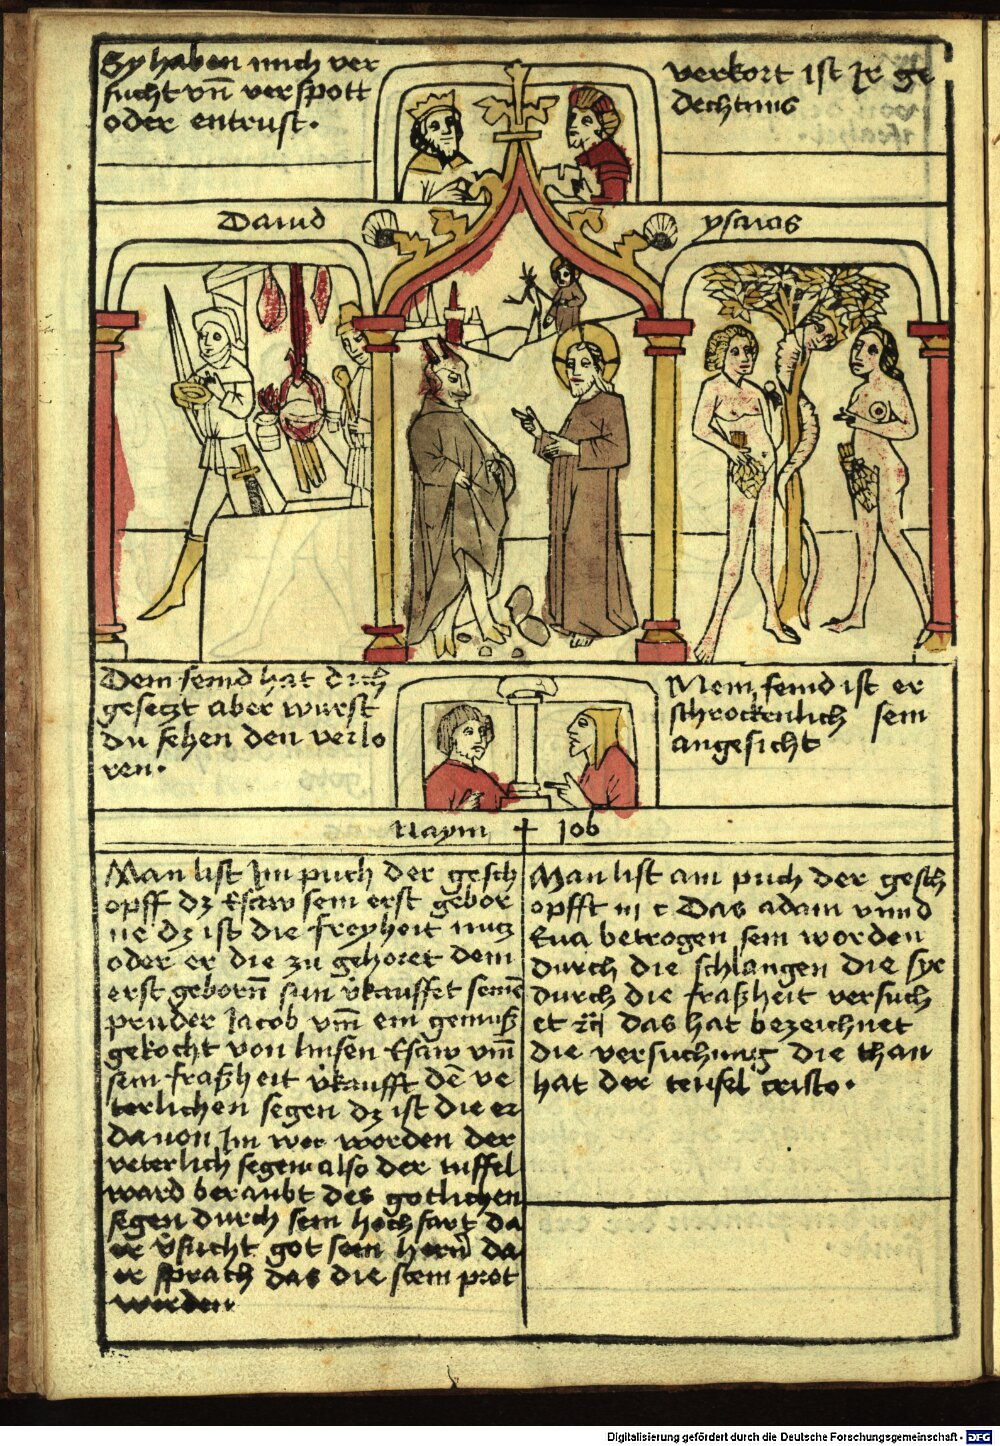 Sy haben mich ver
sucht vñ verspott
oder entrust.
verkort ist Ir ge
dechtnus
Dauid
ysaias
Dein feind hat dich
gesetzt aber wurst
du sehen den verlo
ren.
Mein feind ist er
schrockenlich sein
angesicht
Naym + Job
Man list Im puch der gesch
opff dz Esaw sein erst gebor
ne dz ist die freyheit nutz
oder er die zu gehoret dem
erst gebornn̄ sun v̈kauffet seinē
pruder Jacob vm̄ ein gemuß
gekocht von linsen Esaw vm̄
sein fraßheit v̈kaufft dē ve
terlichen segen dz ist die er
dauon Im wer worden der
veterlich segen also der tuffel
ward beraubt des gotlichen
segen durch sein hochfart da
er v̈sucht got sein hern̄ da
er sprach das die stein prot
werden
Man list am puch der gesch
opfft iii c Das adam vnnd
Eua betrogen sein worden
durch die schlangen die sye
durch die fraßheit versuch
et das hat bezeichnet
die versuchung die than
hat der teufel cristo.
Digitalisierung gefördert durch die Deutsche Forschungsgemeinschaft - DFG